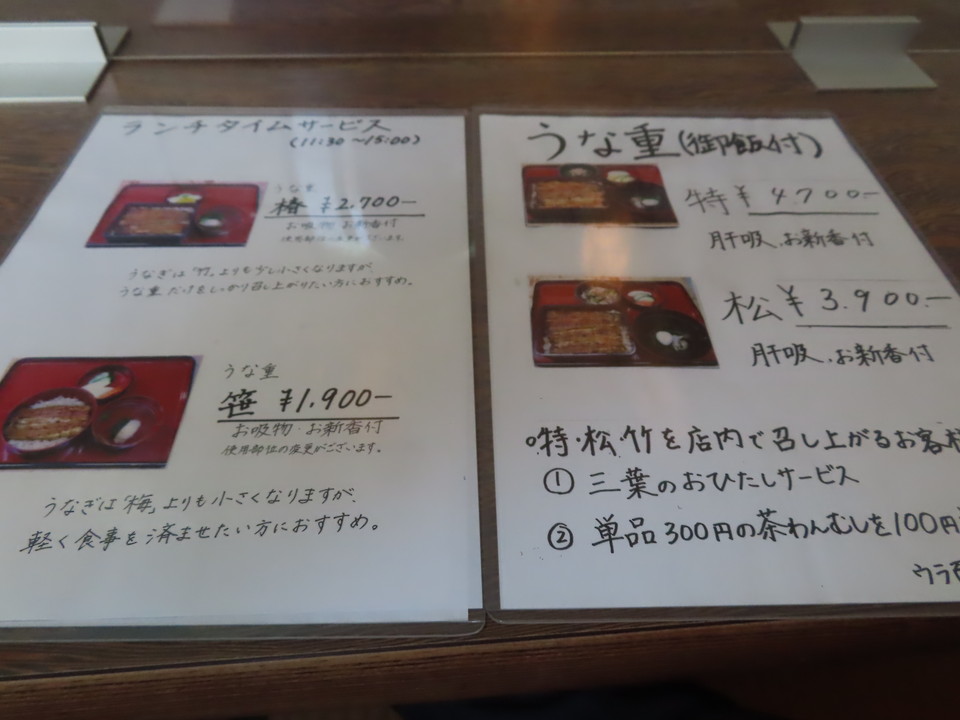 ランチタイムサービス
(11:30~15:00)
うな重
椿 ¥2.700-
お吸物・お新香付
うなぎは「竹」よりも少し小さくなりますが、
うな重だけをしっかり召し上がりたい方におすすめ。
うな重
笹 ¥1.900-
お吸物・お新香付
使用部位の変更がございます。
うなぎは「梅」よりも小さくなりますが、
軽く食事を済ませたい方におすすめ。
うな重(御飯付)
特 ¥4.700-
肝吸、お新香付
松 ¥3.900-
肝吸、お新香付
特・松・竹を店内で召し上がるお客様
① 三葉のおひたしサービス
② 単品300円の茶わんむしを100円
ウラ